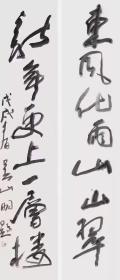 東風化雨山山翠
新年更上一層樓
戊戌年春吳山明題